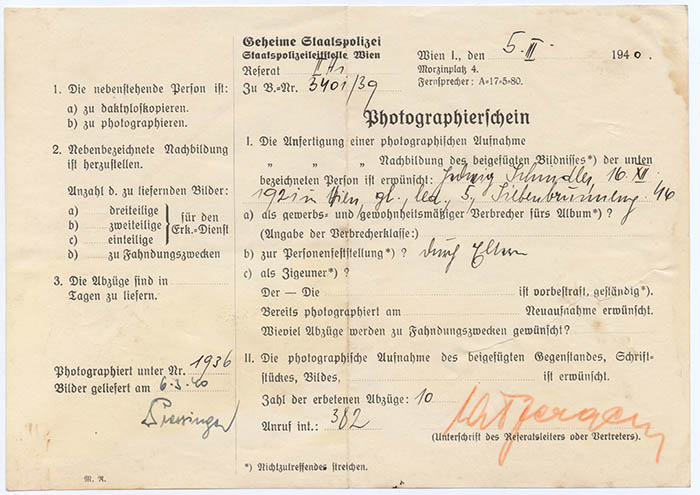 Geheime Staatspolizei
Staatspolizeileitstelle Wien
Referat II A 1
Zu B.-Nr. 3401/39
Wien I., den 5. III. 1940.
Morzinplatz 4.
Fernsprecher: A=17=5=80.
Photographierschein
1. Die nebenstehende Person ist:
a) zu daktyloskopieren.
b) zu photographieren.
2. Nebenbezeichnete Nachbildung
ist herzustellen.
Anzahl d. zu liefernden Bilder:
a) dreiteilige
b) zweiteilige
c) einteilige
für den
Erk.=Dienst
d) zu Fahndungszwecken
3. Die Abzüge sind in
Tagen zu liefern.
Photographiert unter Nr. 1936
Bilder geliefert am 6.3.40
M. R.
I. Die Anfertigung einer photographischen Aufnahme
„ „ „ Nachbildung des beigefügten Bildnisses*) der unten
bezeichneten Person ist erwünscht: Schindler, 16. XII.
1921 in Wien, gl., led., 5, Siebenbrunneng. 46
a) als gewerbs= und gewohnheitsmäßiger Verbrecher fürs Album*) ?
(Angabe der Verbrecherklasse:)
b) zur Personenfeststellung*) ? durch Eltern
c) als Zigeuner*) ?
Der — Die ist vorbestraft, geständig*).
Bereits photographiert am Neuaufnahme erwünscht.
Wieviel Abzüge werden zu Fahndungszwecken gewünscht?
II. Die photographische Aufnahme des beigefügten Gegenstandes, Schrift=
stückes, Bildes, ist erwünscht.
Zahl der erbetenen Abzüge: 10
Anruf int.: 382
(Unterschrift des Referatsleiters oder Vertreters).
*) Nichtzutreffendes streichen.